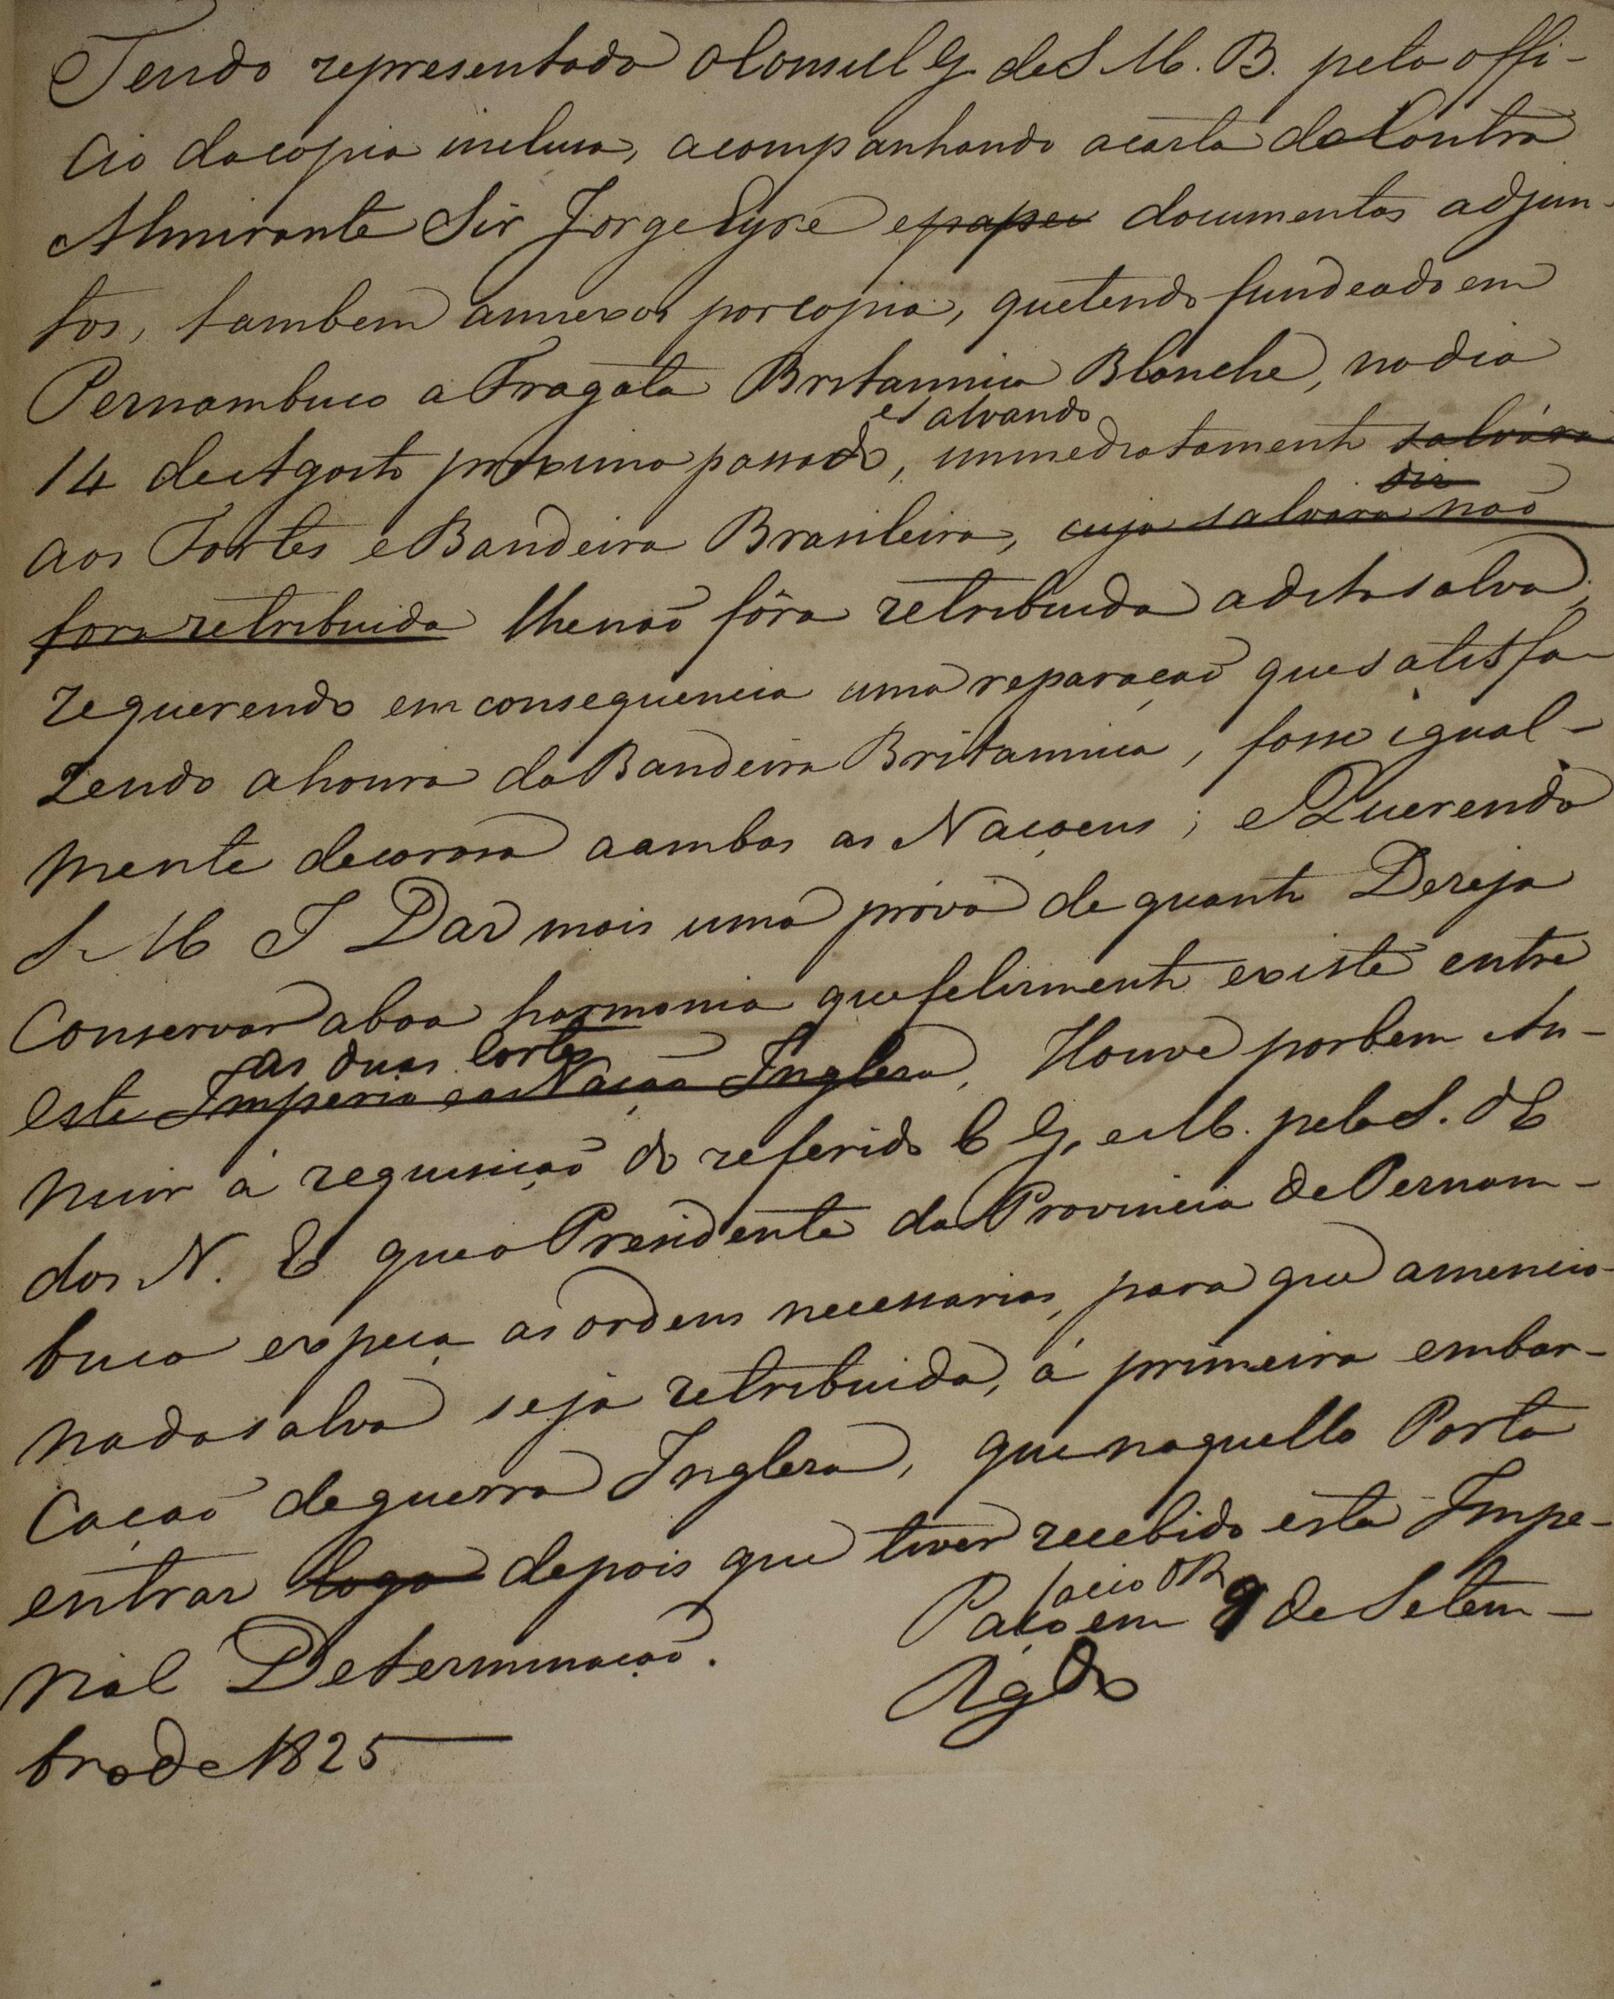 Tendo representado o Consul G. de S. M. B. pelo offi-
cio da copia inclusa, acompanhando a carta do Contra
Almirante Sir Jorge Eyre e papeis documentos adjun-
tos, tambem annexos por copia, que tendo fundeado em
Pernambuco a Fragata Britannica Blanche, no dia
e salvando
14 de Agosto proximo passado, immediatamente salvára
aos Fortes e Bandeira Brasileira, cuja salvára não
fora retribuida lhe não fôra retribuida a dita salva,
requerendo em consequencia uma reparação que satisfa-
zendo a honra da Bandeira Britannica, fosse igual-
mente decorosa a ambas as Naçoens; e Querendo
S. M. I. Dar mais uma prova de quanto Deseja
Conservar a boa harmonia que felismente existe entre
as duas Cortes
este Imperio e a Nação Inglesa, Houve por bem An-
nuir á requisição do referido C. G, e M. pela S. d'E
dos N. E que o Presidente da Provincia de Pernam-
buco expeça as ordens necessarias, para que a mencio-
nada salva seja retribuida, á primeira embar-
cação de guerra Inglesa, que naquelle Porto
entrar logo depois que tiver recebido esta Impe-
rial Determinação. Paço em 9 de Setem-
bro de 1825